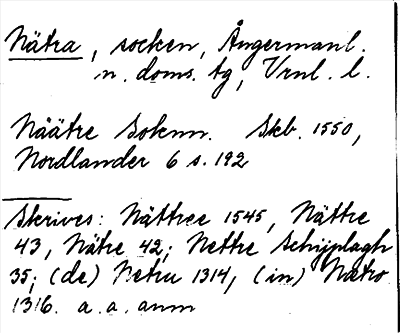 Nätra, socken, Ångermanl.
n. doms. tg, Vrnl. l.
Näätre Soknn. Skb. 1550,
Nordlander 6 s. 192
Skrives: Nättree 1545, Nättre
43, Nätre 42; Nettre Schijplagh
35; (de) Netru 1314, (in) Nætro
1316. a. a. anm